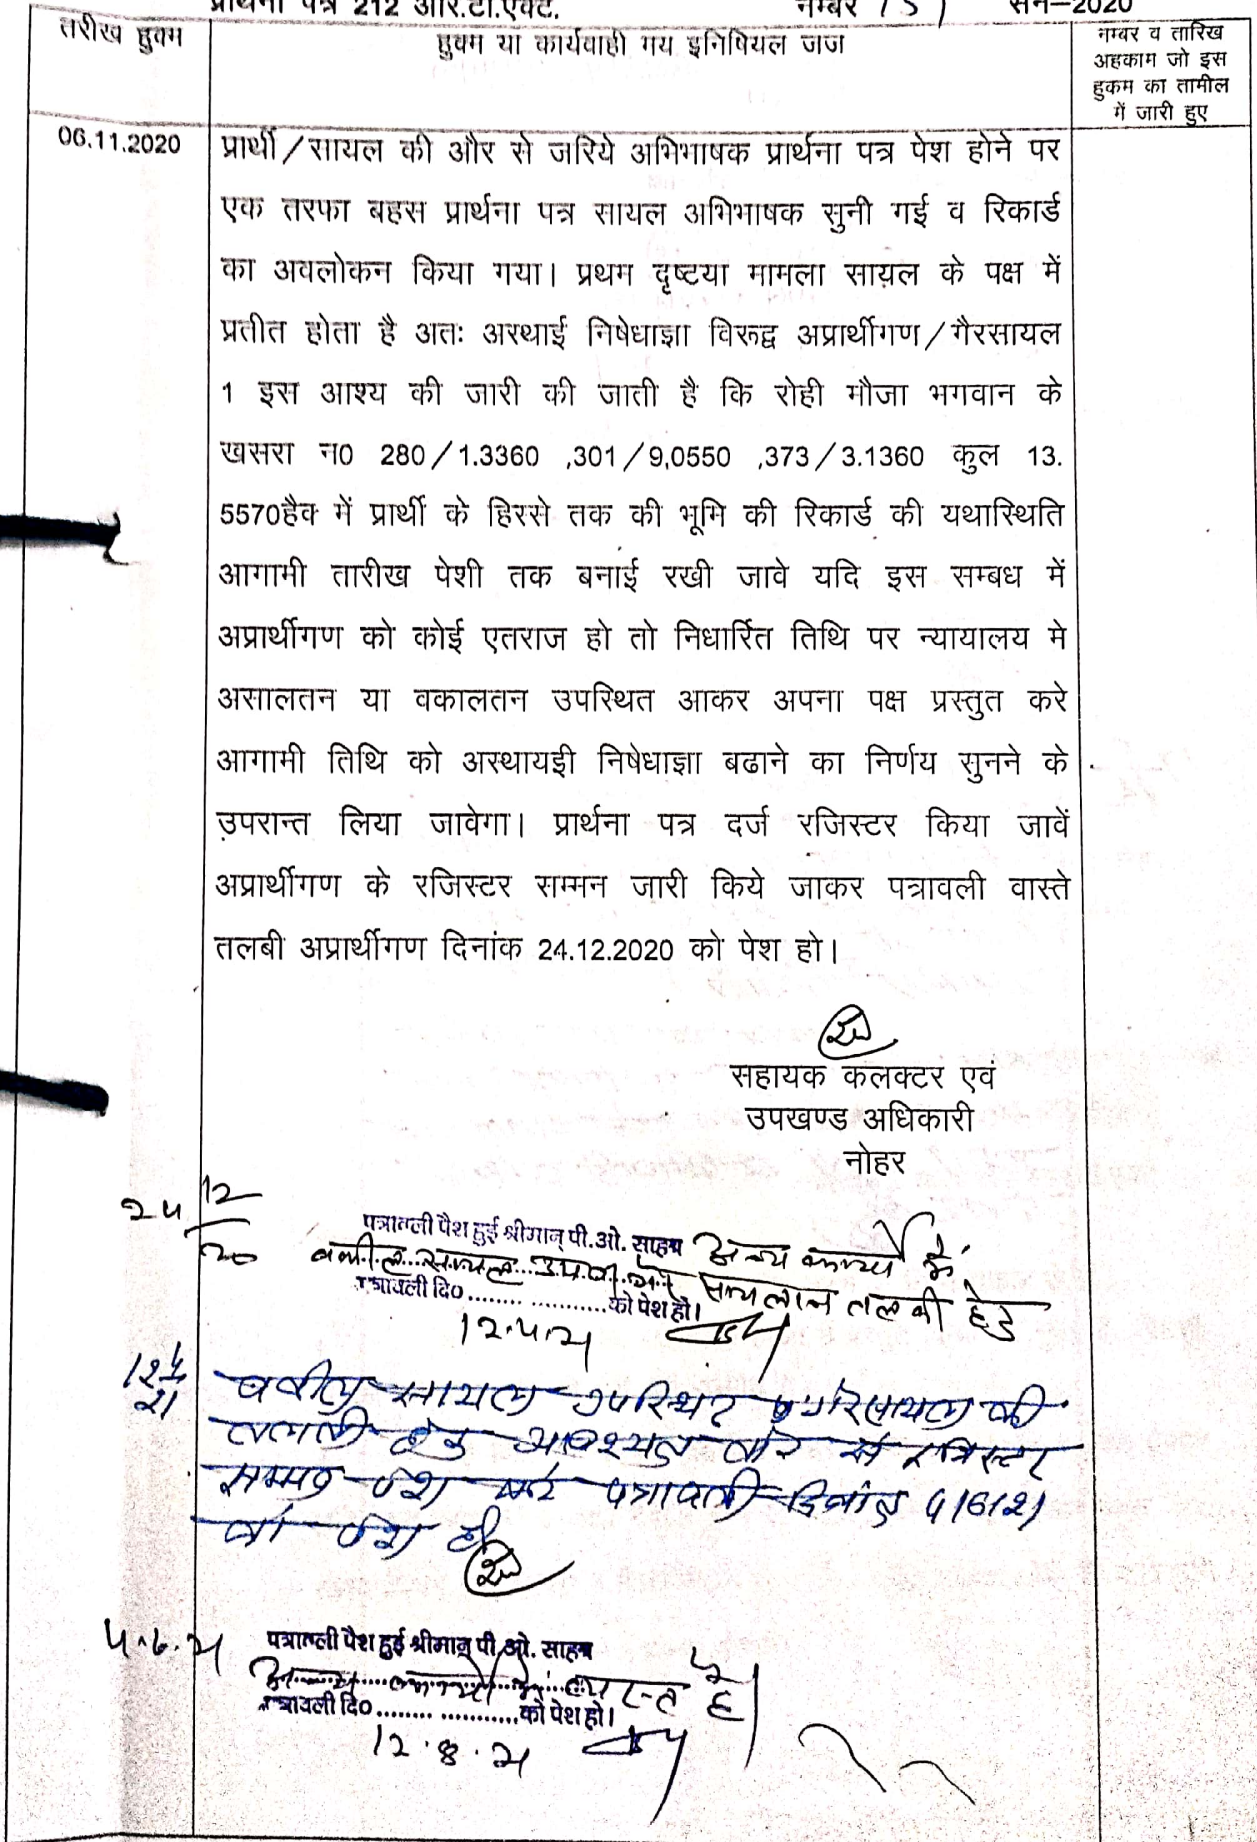 प्रार्थना पत्र 212 आर.टी.एक्ट. नम्बर सन–2020
तरीख हुक्म
हुक्म या कार्यवाही मय इनिषियल जज
नम्बर व तारिख
अहकाम जो इस
हुकम का तामील
में जारी हुए
06.11.2020
प्रार्थी/सायल की और से जरिये अभिभाषक प्रार्थना पत्र पेश होने पर
एक तरफा बहस प्रार्थना पत्र सायल अभिभाषक सुनी गई व रिकार्ड
का अवलोकन किया गया। प्रथम दृष्टया मामला सायल के पक्ष में
प्रतीत होता है अतः अस्थाई निषेधाज्ञा विरूद्व अप्रार्थीगण/गैरसायल
1 इस आश्य की जारी की जाती है कि रोही मौजा भगवान के
खसरा न0 280/1.3360 ,301/9,0550 ,373/3.1360 कुल 13.
5570हैक में प्रार्थी के हिस्से तक की भूमि की रिकार्ड की यथास्थिति
आगामी तारीख पेशी तक बनाई रखी जावे यदि इस सम्बध में
अप्रार्थीगण को कोई एतराज हो तो निधार्रित तिथि पर न्यायालय मे
असालतन या वकालतन उपस्थित आकर अपना पक्ष प्रस्तुत करे
आगामी तिथि को अस्थायइी निषेधाज्ञा बढाने का निर्णय सुनने के
उपरान्त लिया जावेगा। प्रार्थना पत्र दर्ज रजिस्टर किया जावें
अप्रार्थीगण के रजिस्टर सम्मन जारी किये जाकर पत्रावली वास्ते
तलबी अप्रार्थीगण दिनांक 24.12.2020 को पेश हो।
सहायक कलक्टर एवं
उपखण्ड अधिकारी
नोहर
24 12
20
पत्रावली पैश हुई श्रीमान् पी.ओ. साहब अन्य कार्यो में
वकील सायल तलबी हेतु
पत्रावली दि0.................को पेश हो।
12.4.21
12 4
21
वकील सायल उपस्थित गैरसायल की
तलबी हेतु रजिस्टर
सम्मन पेश करे पत्रावली दिनांक 4/6/21
को पेश हो
4.6.21
पत्रावली पैश हुई श्रीमान् पी.ओ. साहब
अन्य कार्यो में व्यस्त है।
पत्रावली दि0.................को पेश हो।
12.8.21